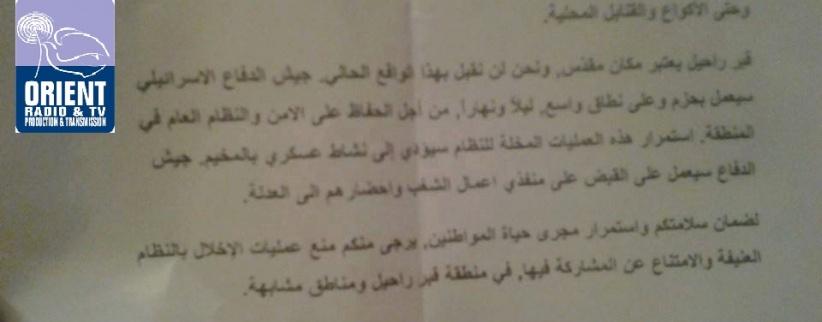 ORIENT
RADIO & TV
PRODUCTION & TRANSMISSION
وحتى الأكواع والقنابل المحلية.
قبر راحيل يعتبر مكان مقدس, ونحن لن نقبل بهذا الواقع الحالي. جيش الدفاع الاسرائيلي
سيعمل بحزم وعلى نطاق واسع, ليلاً ونهاراً, من أجل الحفاظ على الامن والنظام العام في
المنطقة. استمرار هذه العمليات المخلة للنظام سيؤدي إلى نشاط عسكري بالمخيم. جيش
الدفاع سيعمل على القبض على منفذي اعمال الشغب واحضارهم الى العدلة.
لضمان سلامتكم واستمرار مجرى حياة المواطنين, يرجى منكم منع عمليات الإخلال بالنظام
العنيفة والامتناع عن المشاركة فيها, في منطقة قبر راحيل ومناطق مشابهة.